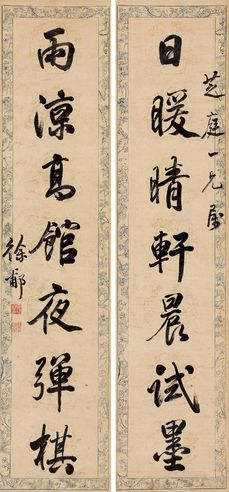 芝庭一兄屬
日暖晴軒晨試墨
雨涼高館夜彈棋
徐郙